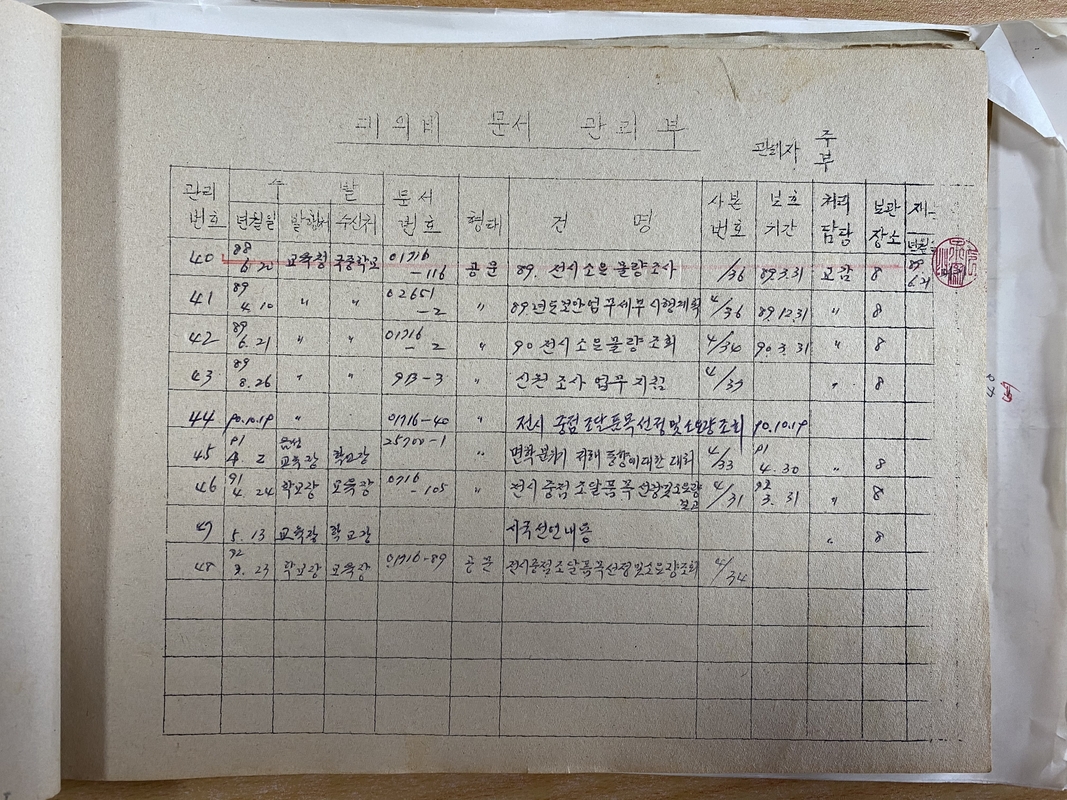 대외비 문서 관리부
관리자 주 부
관리 번호 수 발 문서 번호 형태 건 명 사본 번호 보호 기간 처리 담당 보관 장소
년월일 발행처 수신처 년월
40 88 6.20 교육청 국중학교 01716 -116 공문 89. 전시소요물량조사 /36 89.3.31 교감 8 89 6.21
41 89 4.10 〃 〃 02651 -2 〃 89년도보안업무세부시행계획 4/36 89.12.31 〃 8
42 89 6.21 〃 〃 01716 - 2 〃 90 전시소요물량조회 4/34 90.3.31 〃 8
43 89 8.26 〃 〃 913-3 〃 신원조사 업무지침 4/39 〃 8
44 90.10.19 〃 01716-40 〃 전시 중점조달품목선정및소요량조회 90.10.19
45 91 4.2 교육장 학교장 25700-1 〃 면학분위기 저해동향에대한 대처 4/33 91 4.30 〃 8
46 91 4.24 학교장 교육장 0716 -105 〃 전시중점조달품목선정및소요량 보고 4/31 92 3.31 〃 8
47 5.13 교육장 학교장 시국선언내용 〃 8
48 92 3.23 학교장 교육장 01716-89 공문 전시중점조달품목선정및소요량조회 4/34